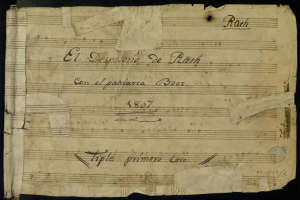 Ruth
El Desposorio de Ruth
Con el patriarca Booz.
1807.
Tiple primero Coro.